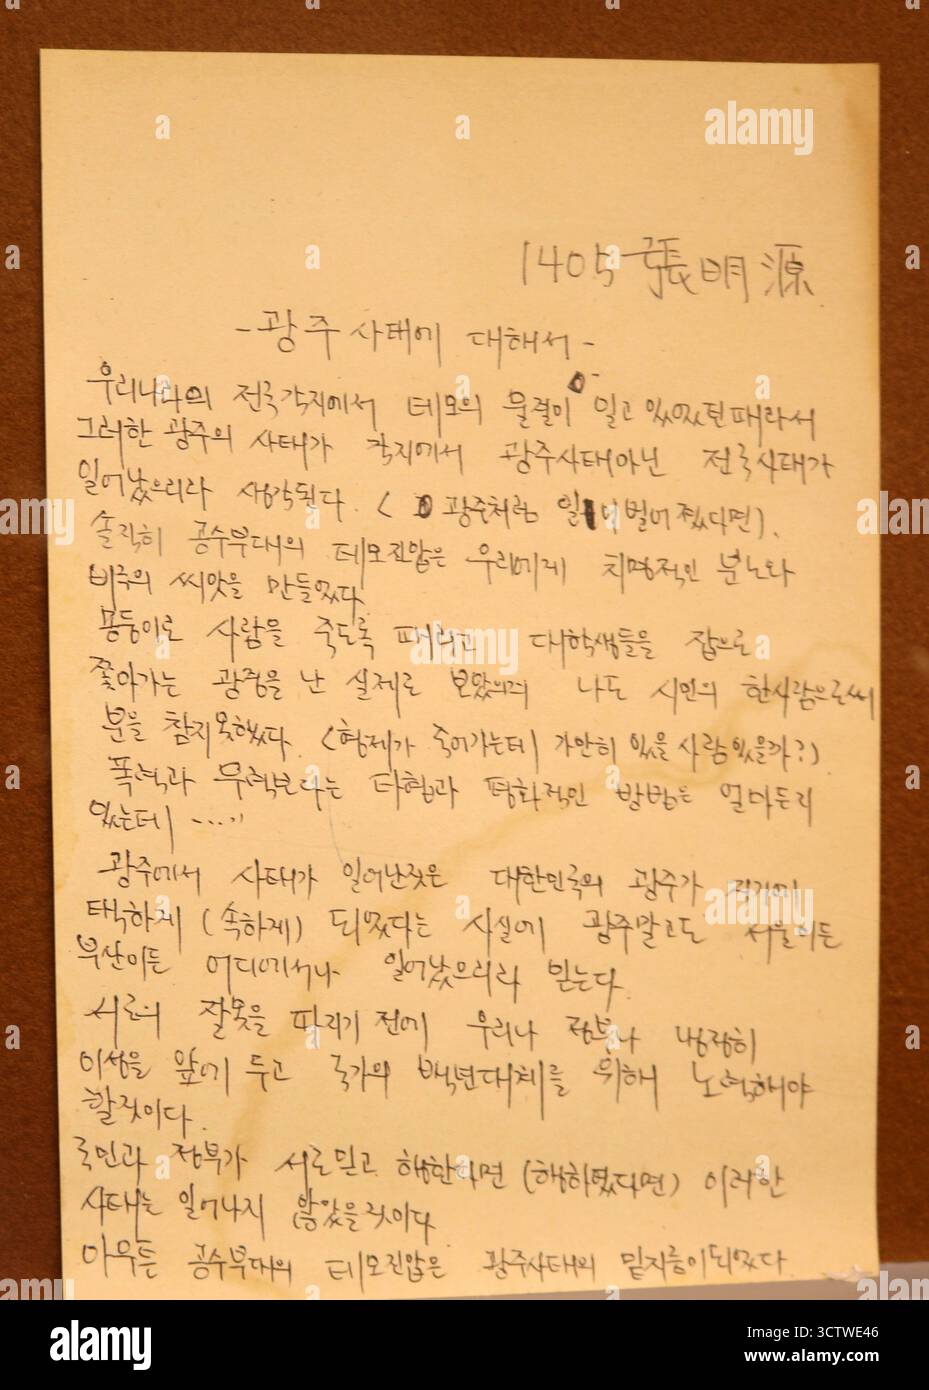 1405 張明源
- 광주 사태에 대해서 -
우리나라의 전국각지에서 데모의 물결이 일고 있었던때라서
그러한 광주의 사태가 각지에서 광주사태아닌 전국사태가
일어났으리라 생각된다. ( 광주처럼 일이 벌어졌다면).
솔직히 공수부대의 데모진압은 우리에게 치명적인 분노와
비극의 씨앗을 만들었다.
몽둥이로 사람을 죽도록 때리고 대학생들을 집으로
쫓아가는 광경을 난 실제로 보았으며 나도 시민의 한사람으로써
분을 참지못했다. (형제가 죽어가는데 가만히 있을 사람있을까?)
폭력과 무력보다는 타협과 평화적인 방법은 얼마든지
있는데 .....
광주에서 사태가 일어난것은 대한민국의 광주가 거기에
택하게 (속하게) 되었다는 사실에 광주말고도 서울이든
부산이든 어디에서나 일어났으리라 믿는다.
서로의 잘못을 따지기 전에 우리나 정부나 냉정히
이성을 앞에 두고 국가의 백년대계를 위해서 노력해야
할것이다.
국민과 정부가 서로믿고 행한다면 (행하였다면) 이러한
사태는 일어나지 않았을것이다
아무튼 공수부대의 데모진압은 광주사태의 밑지름이되었다.
alamy
Image ID: 3CTWE46
www.alamy.com